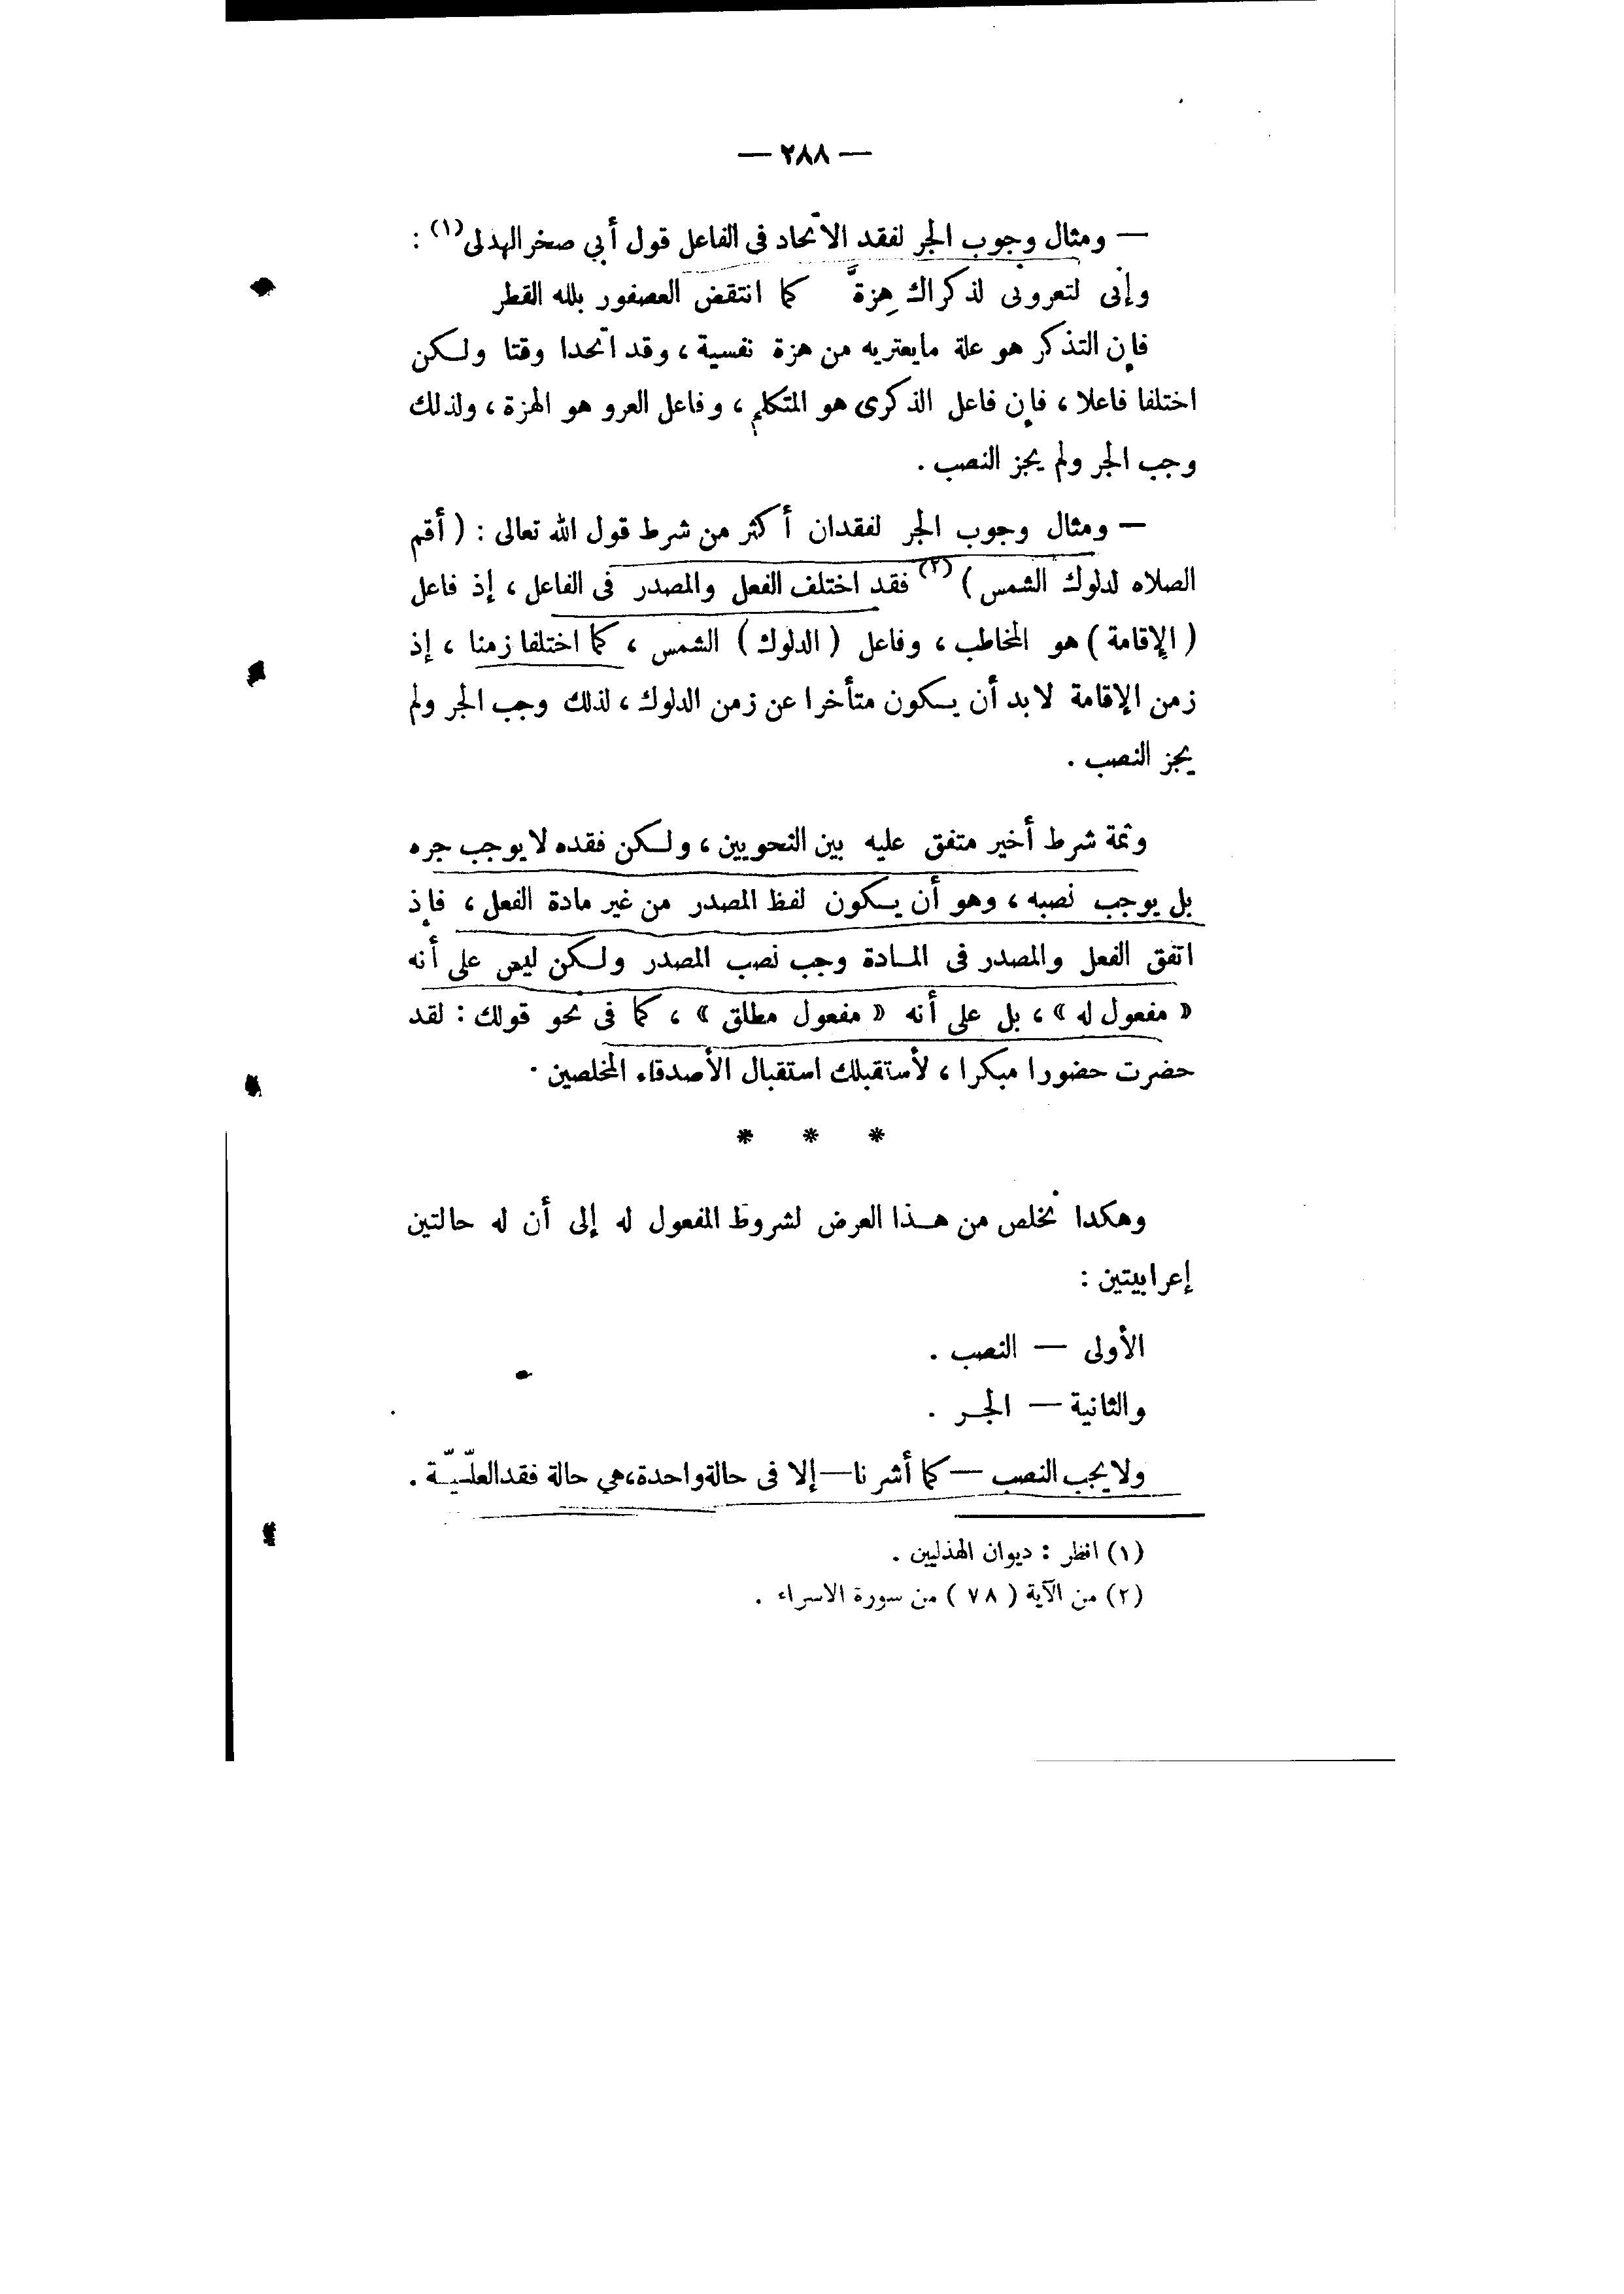 — ٢٨٨ —
— ومثال وجوب الجر لفقد الاتحاد فى الفاعل قول أبي صخر الهدلى(١) :
وإنى لتعرونى لذكراك هِزةَّ كما انتقض العصفور بلله القطر
فإن التذكر هو علة مايعتريه من هزة نفسية ، وقد اتحدا وقتا ولكن
اختلفا فاعلا ، فإن فاعل الذكرى هو المتكلم ، وفاعل العرو هو الهزة ، ولذلك
وجب الجر ولم يجز النصب .
— ومثال وجوب الجر لفقدان أكثر من شرط قول الله تعالى : ( أقم
الصلاه لدلوك الشمس )(٢) فقد اختلف الفعل والمصدر فى الفاعل ، إذ فاعل
( الإقامة ) هو المخاطب ، وفاعل ( الدلوك ) الشمس ، كما اختلفا زمنا ، إذ
زمن الإقامة لابد أن يكون متأخرا عن زمن الدلوك ، لذلك وجب الجر ولم
يجز النصب .
وثمة شرط أخير متفق عليه بين النحويين ، ولكن فقده لايوجب جره
بل يوجب نصبه ، وهو أن يكون لفظ المصدر من غير مادة الفعل ، فإذ
اتفق الفعل والمصدر فى المادة وجب نصب المصدر ولكن ليس على أنه
« مفعول له » ، بل على أنه « مفعول مطلق » ، كما فى نحو قولك : لقد
حضرت حضورا مبكرا ، لأستقبلك استقبال الأصدقاء المخلصين .
* * *
وهكدا نخلص من هذا العرض لشروط المفعول له إلى أن له حالتين
إعرابيتين :
الأولى — النصب .
والثانية — الجر .
ولايجب النصب — كما أشرنا — إلا فى حالة واحدة ، هي حالة فقد العلّـيّـة .
(١) انظر : ديوان الهذليين .
(٢) من الآية ( ٧٨ ) من سورة الاسراء .